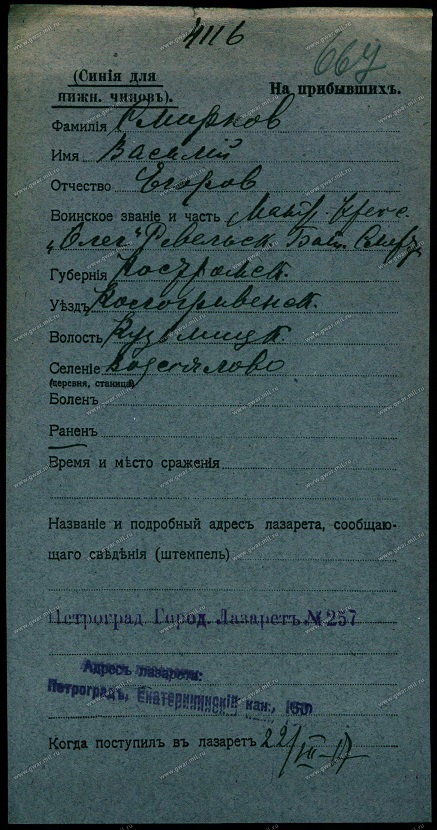 4116
667
(Синія для
нижн. чиновъ).
На прибывшихъ.
Фамилія Смирнов
Имя Василій
Отчество Егоров
Воинское званіе и часть Матр. Крейс.
„Олег" Ревельск. Бат. Смерти
Губернія Костромск.
Уѣздъ Кологривск.
Волость
Селеніе
(деревня, станица)
Боленъ
Раненъ
Время и мѣсто сраженія
Названіе и подробный адресъ лазарета, сообщаю-
щаго свѣдѣнія (штемпель)
Петроград. Город. Лазаретъ № 257
Адресъ лазарета:
Петроградъ, Екатерининскій кан.,
Когда поступил въ лазаретъ 22/VII-17
www.gwar.mil.ru